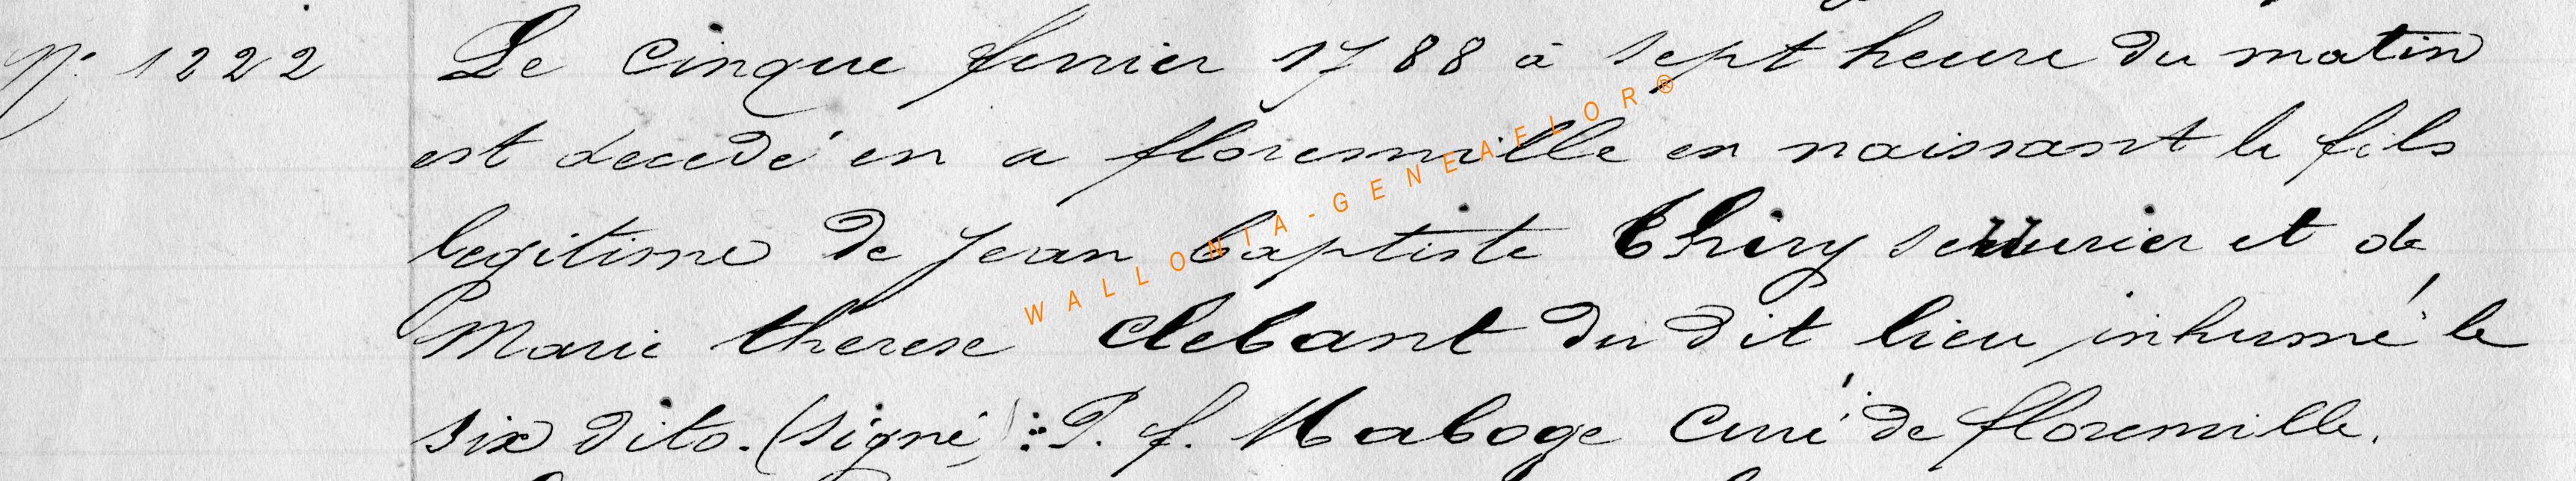 N° 1222 Le cinque fevrier 1788 à sept heure du matin
est decedé en a florenville en naissant le fils
legitime de jean baptiste Thiry serrurier et de
Marie therese Clebant du dit lieu inhumé le
six dito. (signé) : P. f. Maboge Curé de florenville.
WALLONIA-GENEAFLOR®